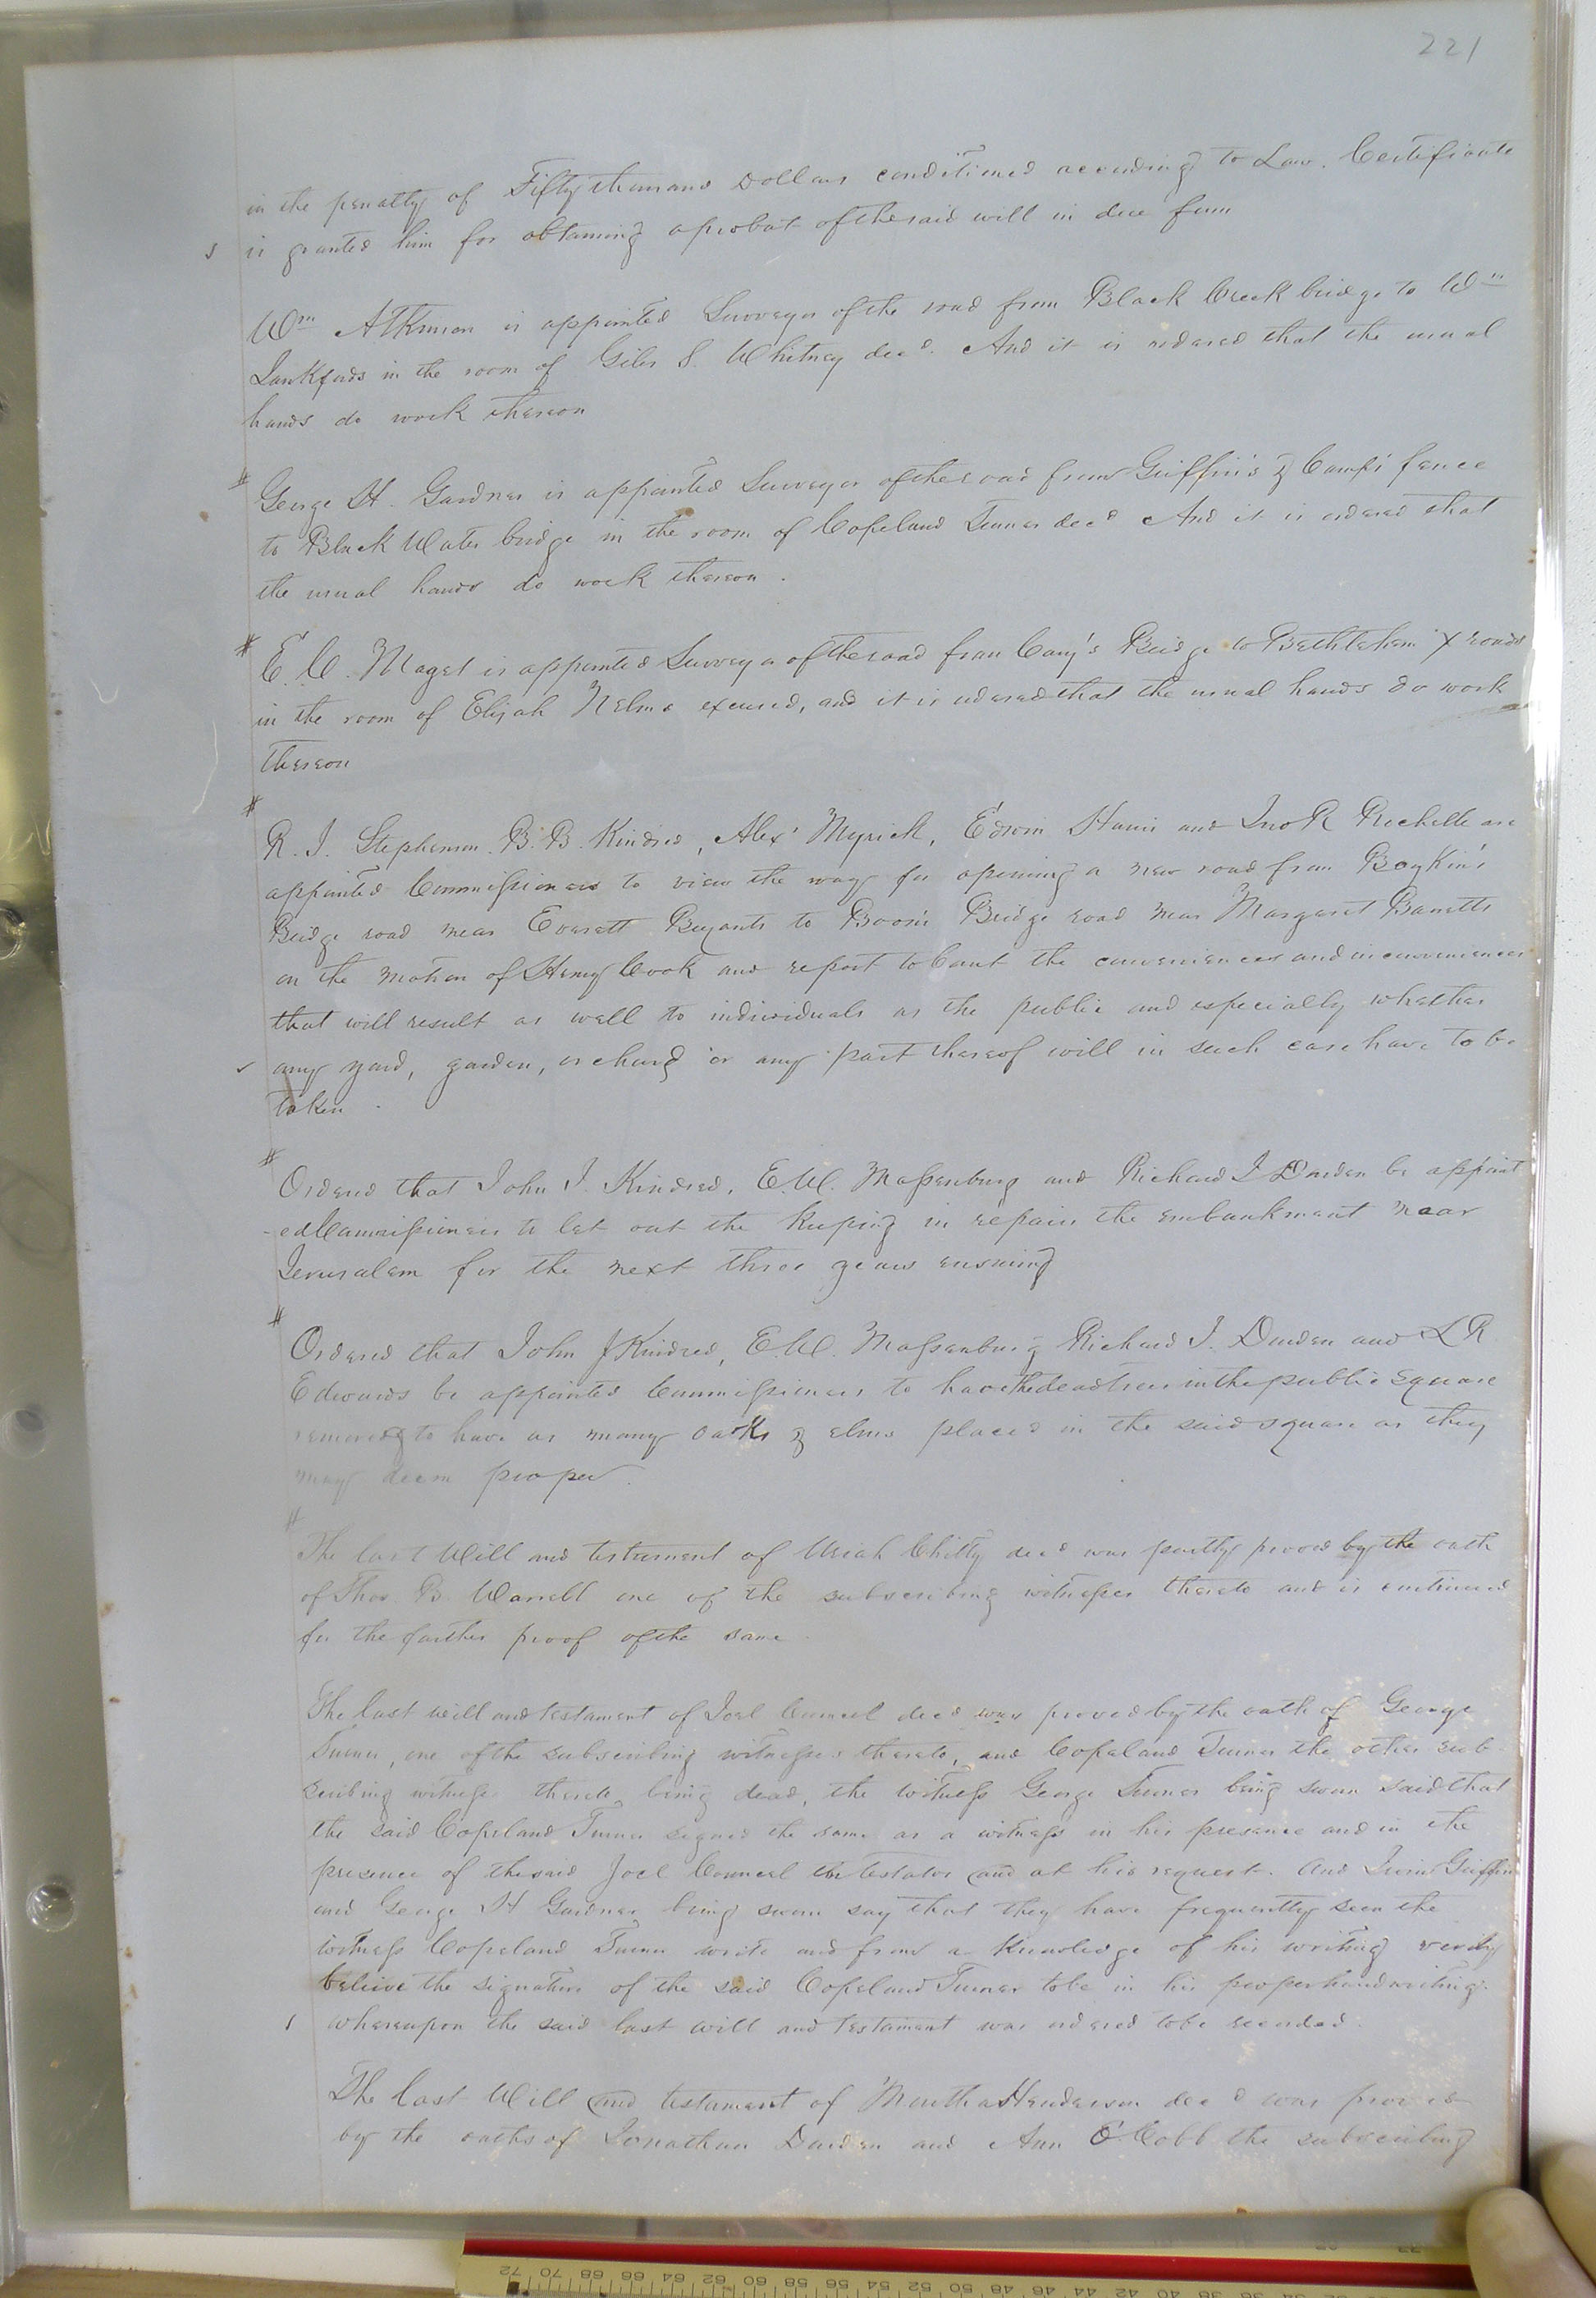 221
in the penalty of Fifty thousand Dollars conditioned according to Law. Certificate
is granted him for obtaining a probat of the said will in due form
Wm Atkinson is appointed Surveyor of the road from Black Creek bridge to Wm
Lankfords in the room of Giles S. Whitney decd. And it is ordered that the usual
hands do work thereon
#
George H. Gardner is appointed Surveyor of the road from Griffin's & Camp's fence
to Black Water bridge in the room of Copeland Turner decd And it is ordered that
the usual hands do work thereon.
#
E. W. Maget is appointed Surveyor of the road from Cary's Bridge to Bethlehem X roads
in the room of Elijah Nelms excused, and it is ordered that the usual hands do work
thereon
#
R. J. Stephenson. B. B. Kindred, Alexr Myrick, Edwin Harris and Jno R Rochelle are
appointed Commissioners to view the way for opening a new road from Boykin's
Bridge road near Everett Bryants to Boon's Bridge road near Margaret Barretts
on the motion of Henry Cook and report to Court the conveniences and inconveniences
that will result as well to individuals as the public and especially whether
any yard, garden, orchard or any part thereof will in such case have to be
taken.
#
Ordered that John J. Kindred, E. W. Massenburg and Richard J Darden be appoint
-ed Commissioners to let out the keeping in repair the embankment near
Jerusalem for the next three years ensuing
#
Ordered that John J Kindred, E. W. Massenburg Richard J. Darden and L R
Edwards be appointed Commissioners to have the dead trees in the public square
removed & to have as many oaks & elms placed in the said square as they
may deem proper.
#
The last Will and testament of Uriah Chitty decd was partly proved by the oath
of Thos B. Worrell one of the subscribing witnesses thereto and is continued
for the farther proof of the same.
The last will and testament of Joel Council decd was proved by the oath of George
Turner, one of the subscribing witnesses thereto, and Copeland Turner the other sub-
scribing witness thereto, being dead, the witness George Turner being sworn said that
the said Copeland Turner signed the same as a witness in his presence and in the
presence of the said Joel Council the testator and at his request. And Griffin
and George H Gardner being sworn say that they have frequently seen the
witness Copeland Turner write and from a knowledge of his writing verily
believe the signature of the said Copeland Turner to be in his proper handwriting.
whereupon the said last will and testament was ordered to be recorded.
The last Will and testament of Martha Henderson decd was proved
by the oaths of Jonathan Darden and Ann E Cobb the subscribing
72 70 68 66 64 62 60 58 56 54 52 50 48 46 44 42 40 38 36 34 32